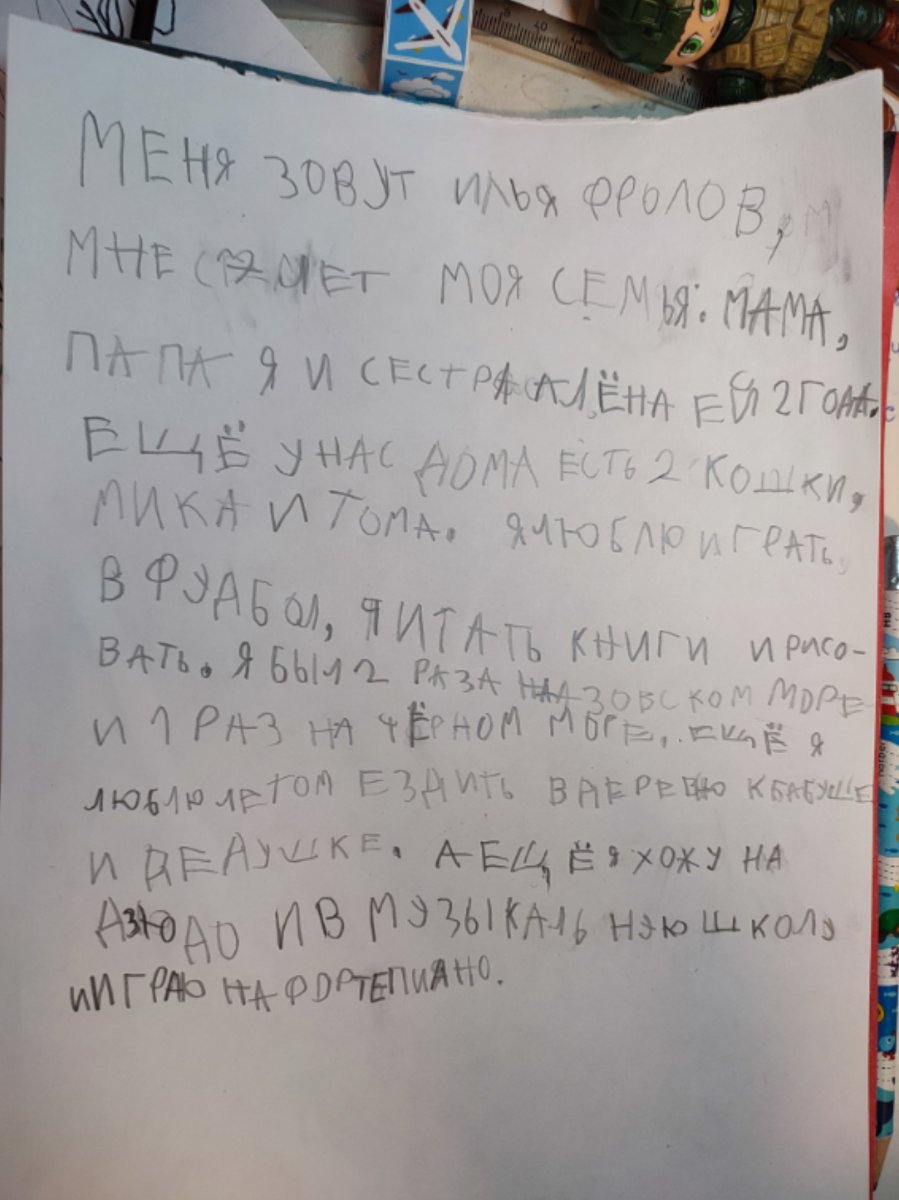 МЕНЯ ЗОВУТ ИЛЬЯ ФРОЛОВ,
МНЕ ЛЕТ МОЯ СЕМЬЯ: МАМА,
ПАПА Я И СЕСТРА АЛЁНА ЕЙ 2 ГОДА.
ЕЩЁ У НАС ДОМА ЕСТЬ 2 КОШКИ,
МИКА И ТОМА. Я ЛЮБЛЮ ИГРАТЬ
В ФУДБОЛ, ЧИТАТЬ КНИГИ И РИСО-
ВАТЬ. Я БЫЛ 2 РАЗА НА АЗОВСКОМ МОРЕ
И 1 РАЗ НА ЧЁРНОМ МОРЕ. ЕЩЁ Я
ЛЮБЛЮ ЛЕТОМ ЕЗДИТЬ В ДЕРЕВНЮ К БАБУШЕ
И ДЕДУШКЕ. А ЕЩЁ Я ХОЖУ НА
ДЗЮДО И В МУЗЫКАЛЬНУЮ ШКОЛУ
И ИГРАЮ НА ФОРТЕПИАНО.